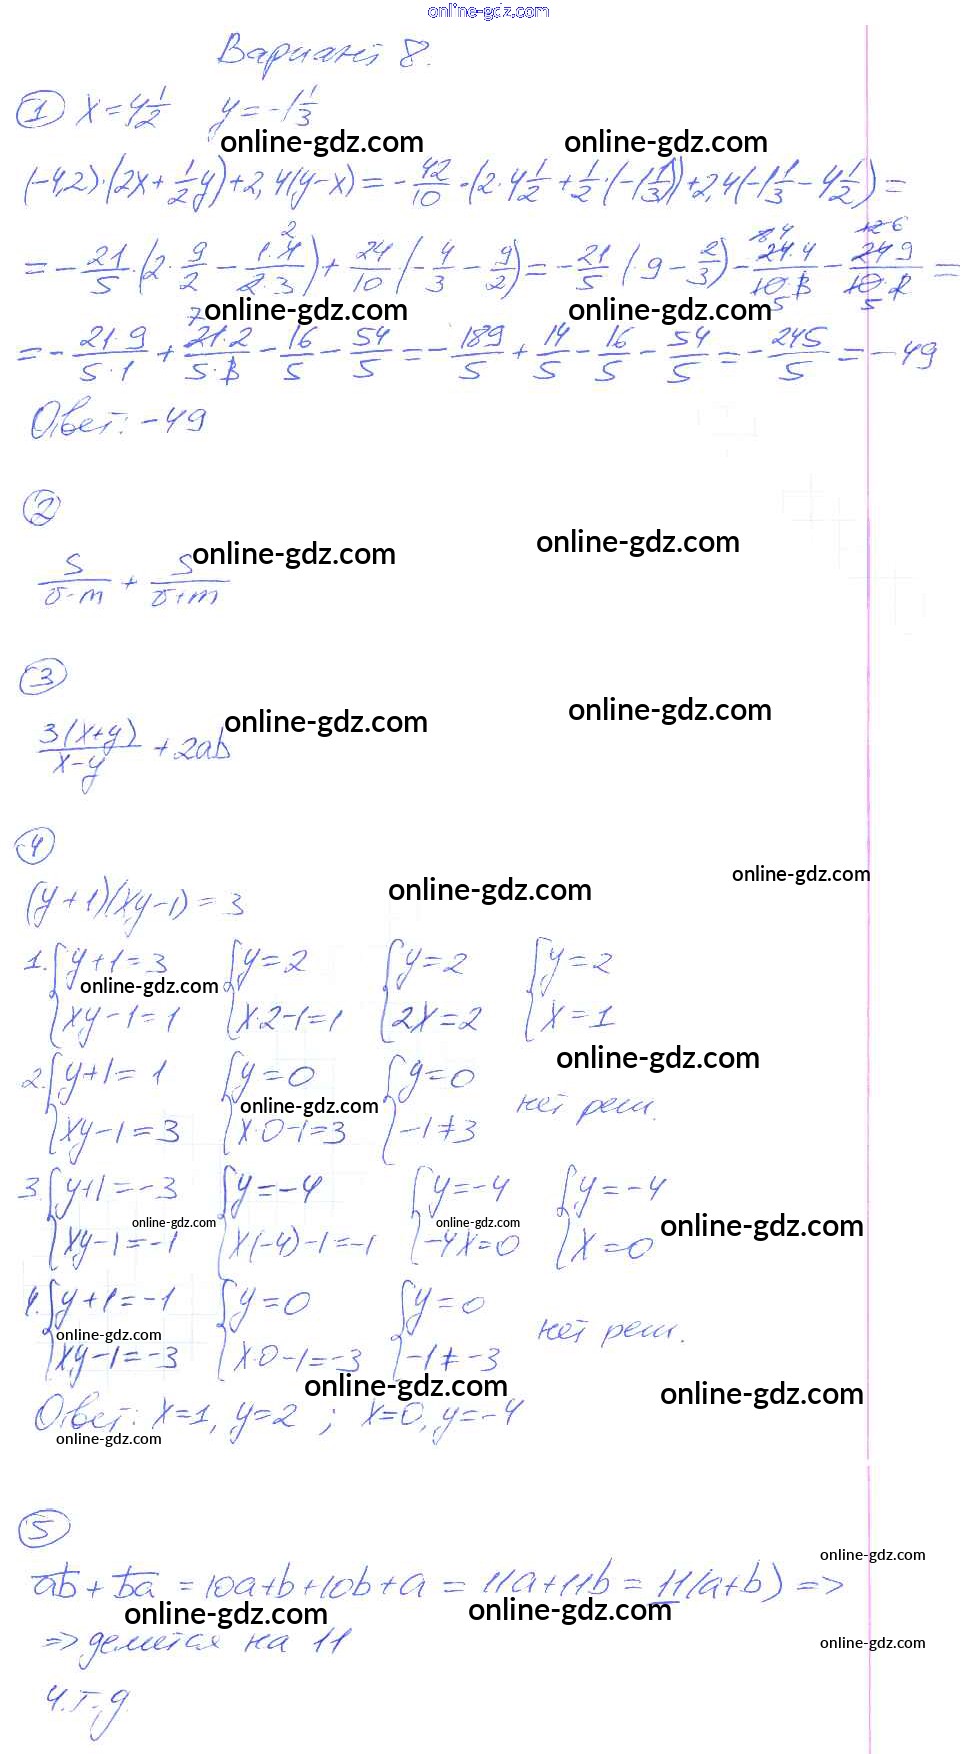 online-gdz.com
Вариант 8.
① x = 4 1/2 y = -1 1/3
online-gdz.com online-gdz.com
(-4,2)·(2x + 1/2 y) + 2,4(y - x) = - 42/10 ·(2·4 1/2 + 1/2·(-1 1/3)) + 2,4(-1 1/3 - 4 1/2) =
= - 21/5 ·(2· 9/2 - 1·4/2·3) + 24/10 (- 4/3 - 9/2) = - 21/5 (·9 - 2/3) - 24·4/10·3 - 24·9/10·2 =
online-gdz.com online-gdz.com
= - 21·9/5·1 + 21·2/5·3 - 16/5 - 54/5 = - 189/5 + 14/5 - 16/5 - 54/5 = - 245/5 = -49
Ответ: -49
②
online-gdz.com online-gdz.com
S/(v-m) + S/(v+m)
③
online-gdz.com online-gdz.com
3(x+y)/(x-y) + 2ab
④
online-gdz.com
(y+1)(xy-1) = 3
online-gdz.com
1. { y+1=3 { y=2 { y=2 { y=2
online-gdz.com
xy-1=1 x·2-1=1 2x=2 x=1
online-gdz.com
2. { y+1=1 { y=0 { y=0 нет реш.
online-gdz.com
xy-1=3 x·0-1=3 -1≠3
3. { y+1=-3 { y=-4 { y=-4 { y=-4
online-gdz.com online-gdz.com online-gdz.com
xy-1=-1 x(-4)-1=-1 -4x=0 x=0
4. { y+1=-1 { y=0 { y=0 нет реш.
online-gdz.com
xy-1=-3 x·0-1=-3 -1≠-3
online-gdz.com online-gdz.com
Ответ: x=1, y=2 ; x=0, y=-4
online-gdz.com
⑤
online-gdz.com
ab + ba = 10a+b+10b+a = 11a+11b = 11(a+b) =>
online-gdz.com online-gdz.com
=> делится на 11
online-gdz.com
ч.т.д.